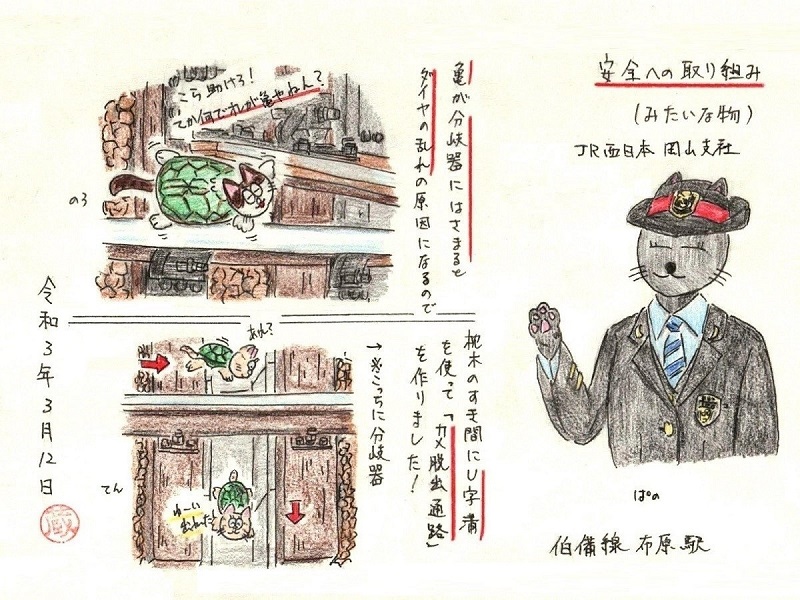 安全への取り組み
(みたいな物)
JR西日本 岡山支社
ぱの
伯備線 布原駅
亀が分岐器にはさまると
ダイヤの乱れの原因になるので
こら助けろ!
てか何でオレが亀やねん?
のろ
枕木のすき間にU字溝
を使って「カメ脱出通路」
を作りました!
→※こっちに分岐器
あれ?
わーい
出れた!
てん
令和3年3月12日